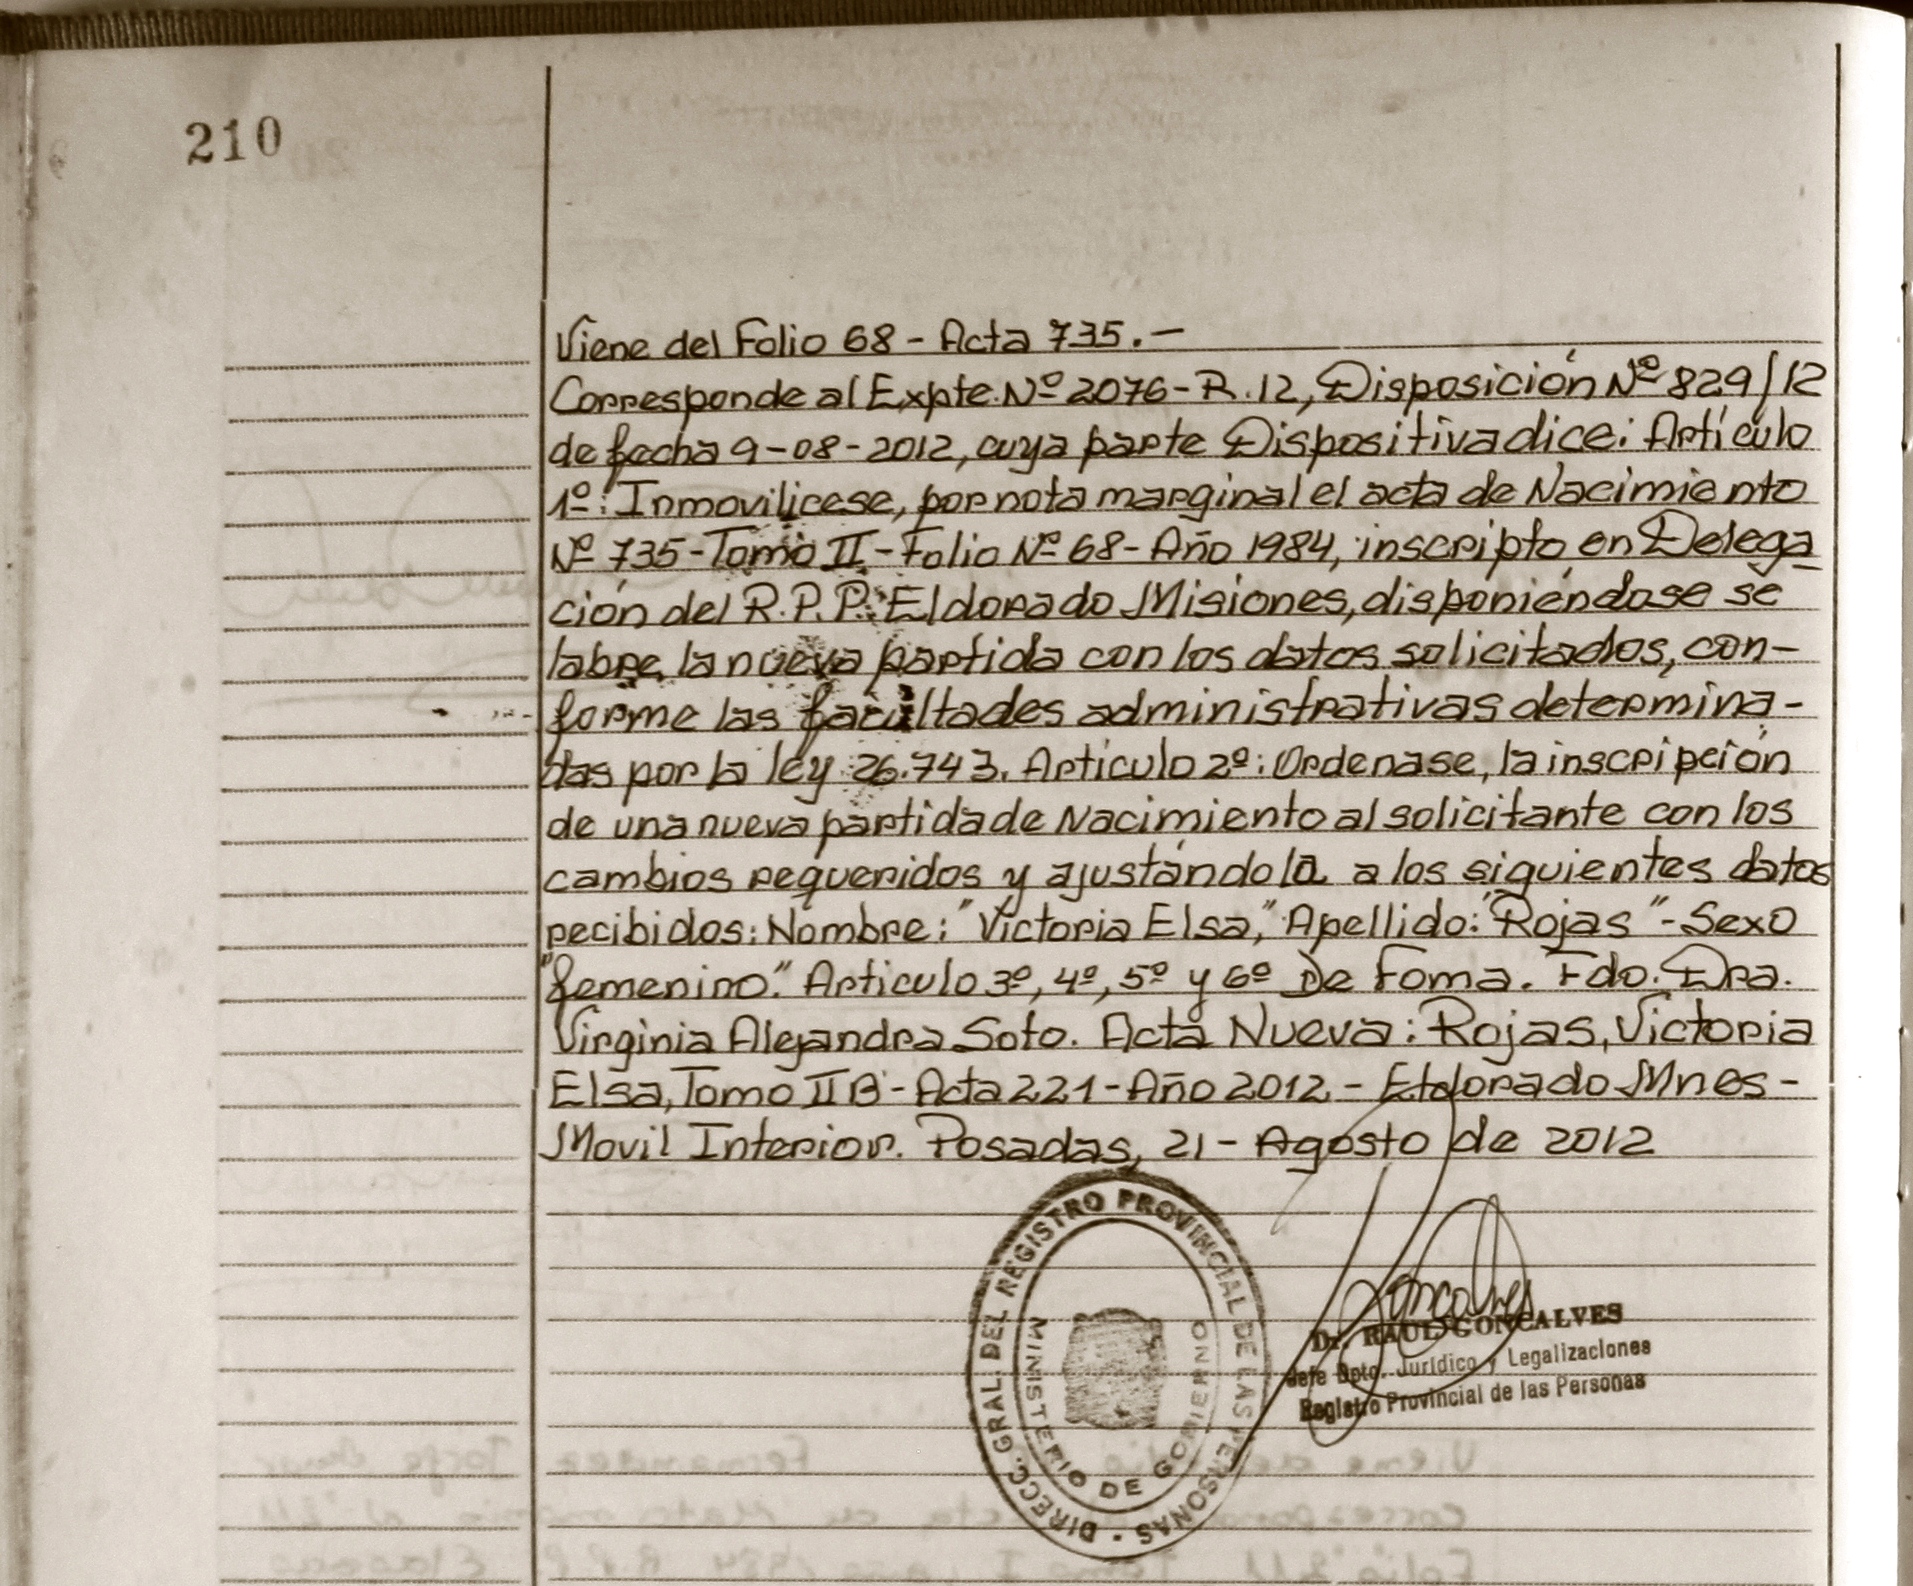 210
Viene del Folio 68 - Acta 735.-
Corresponde al Expte. Nº 2076-R.12, Disposición Nº 829/12
de fecha 9-08-2012, cuya parte Dispositiva dice: Artículo
1º: Inmovilicese, por nota marginal el acta de Nacimiento
Nº 735-Tomo II-Folio Nº 68-Año 1984, inscripto en Delega
ción del R.P.P. Eldorado Misiones, disponiéndose se
labre la nueva partida con los datos solicitados, con-
forme las facultades administrativas determina-
das por la ley 26.743. Artículo 2º: Ordenase, la inscripción
de una nueva partida de Nacimiento al solicitante con los
cambios requeridos y ajustándola a los siguientes datos
recibidos: Nombre: "Victoria Elsa," Apellido: "Rojas"-Sexo
"femenino". Articulo 3º, 4º, 5º y 6º De Foma. Fdo. Dra.
Virginia Alejandra Soto. Acta Nueva: Rojas, Victoria
Elsa, Tomo II B - Acta 221 - Año 2012 - Eldorado Mnes -
Movil Interior. Posadas, 21 - Agosto de 2012
DIRECC. GRAL. DEL REGISTRO PROVINCIAL DE LAS PERSONAS -
MINISTERIO DE GOBIERNO
Goncalves
Dr. RAUL GONCALVES
Jefe Dpto. Jurídico y Legalizaciones
Registro Provincial de las Personas